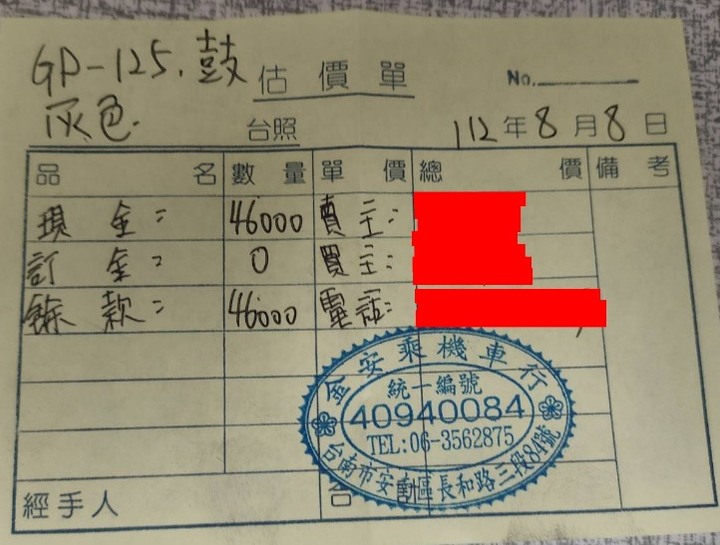 GP-125.鼓
估價單
No.
灰色.
台照
112年8月8日
品名 數量 單價 總價 備考
現金: 46000 賣主:
訂金: 0 買主:
餘款: 46000 電話:
金安乘機車行
統一編號
40940084
TEL:06-3562875
台南市安南區長和路三段84號
經手人
台